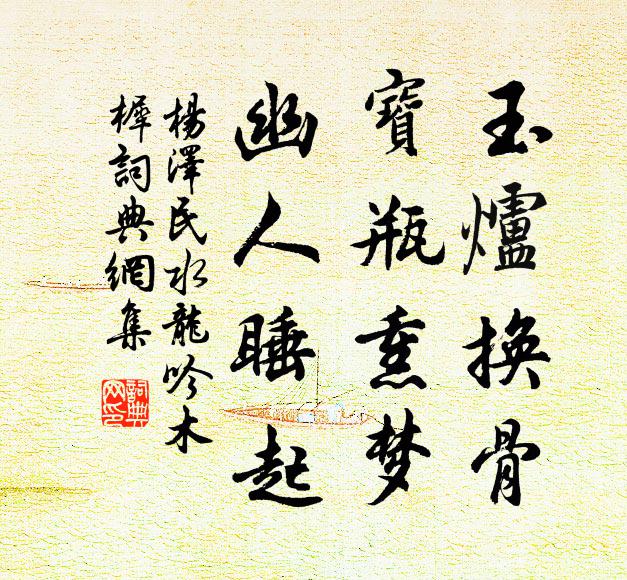 玉爐換骨
寶瓶熏梦
幽人睡起
楊澤民水龍吟木
樨詞典網集
詞典網印